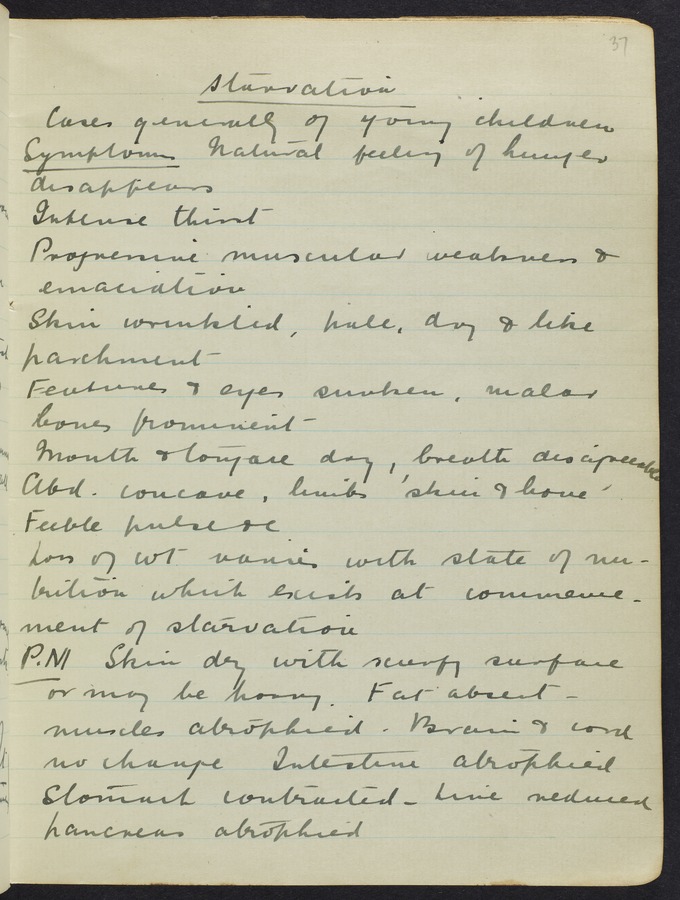 37
Starvation
Cases generally of young children
Symptoms Natural feeling of hunger
disappears
Intense thirst
Progressive muscular weakness &
emaciation
Skin wrinkled, pale, dry & like
parchment
Features & eyes sunken, malar
bones prominent
Mouth & tongue dry, breath disagreeable
Abd. concave, limbs 'skin & bone'
Feeble pulse &c
Loss of wt varies with state of nu-
trition which exists at commence-
ment of starvation
P.M Skin dry with scurfy surface
or may be Fat absent -
muscles atrophied. Brain & cord
no change Intestine atrophied
Stomach contracted - Liver reduced
pancreas atrophied